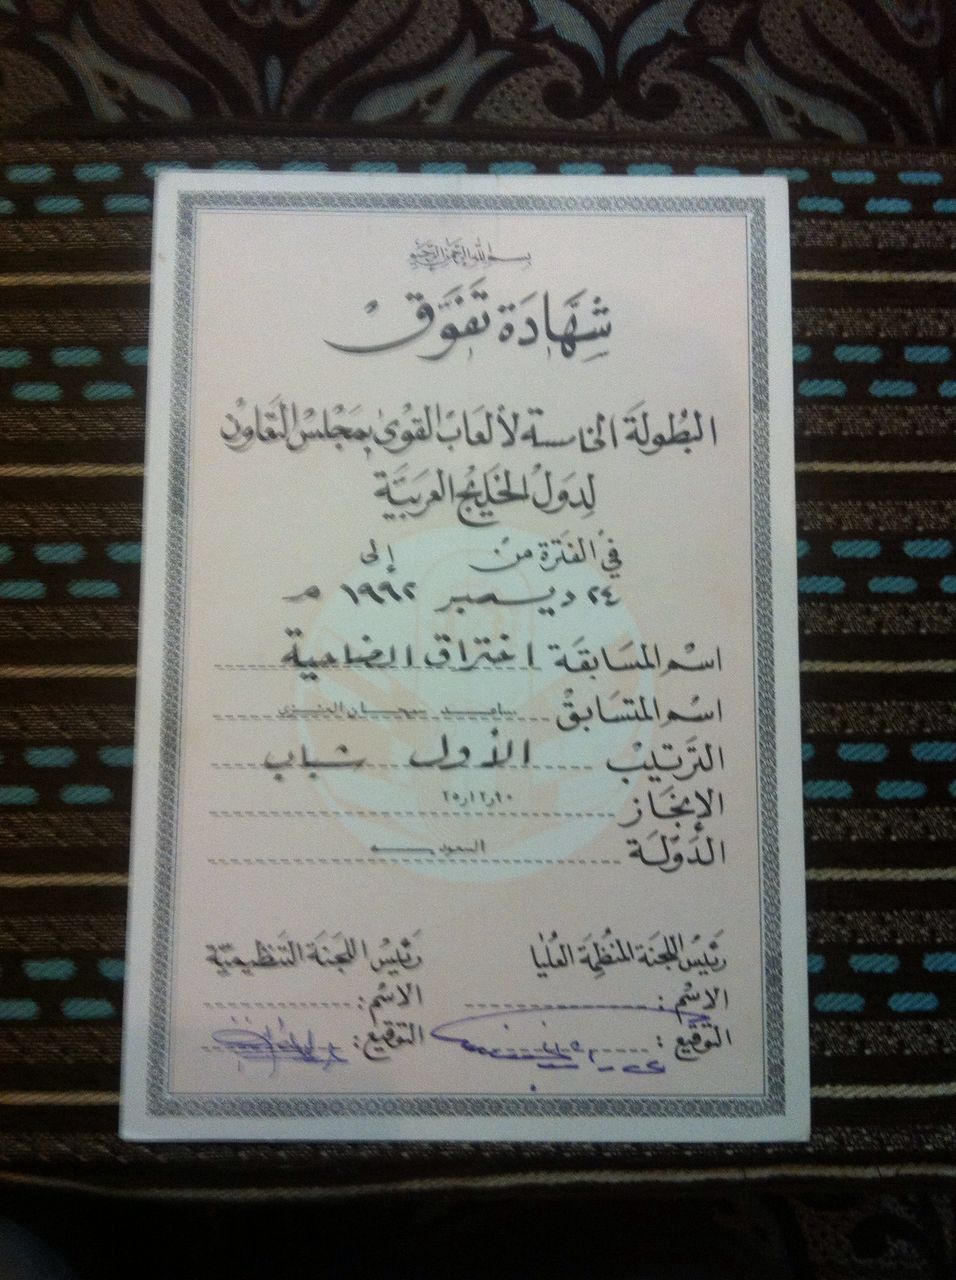 بسم الله الرحمن الرحيم
شَهَادَة تَفَوّق
البُطولَة الخامسة لألعاب القوى بمَجْلس التعَاون
لِدول الخليْج العَربيَّة
في الفترة من إلى
٢٤ ديسمبر ١٩٩٢ م
اسْم المسَابقَة اختراق الضاحية
اسْم المتسَابقْ العنزي
التَرتيْب الأول شباب
الإنجَاز
الدَوْلَة السعوديه
رَئيْس اللجنَة المنظِمَة العُليَا
رَئيْس اللجنَة التَنظيميَّة
الاسْم :
الاسْم :
التَوقيع :
التَوقيع :